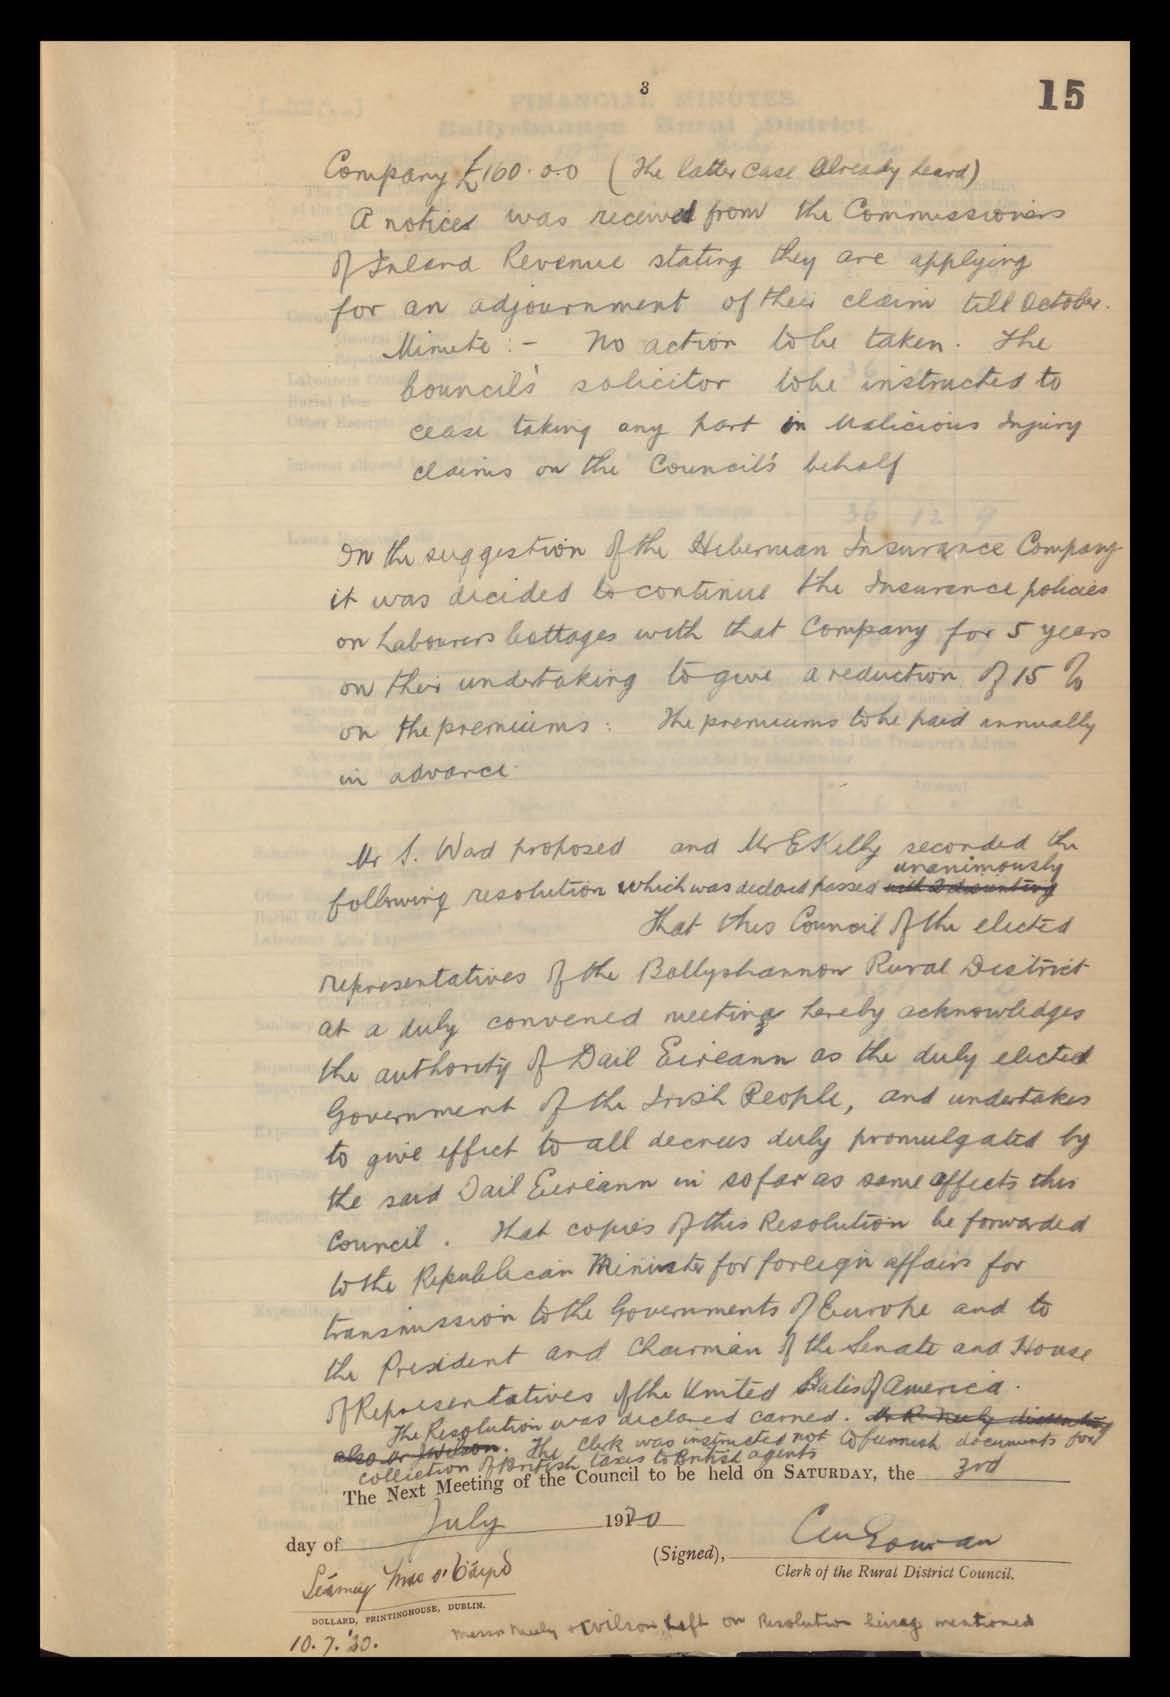 3
15
Company £160.0.0 (The latter case already heard)
A notice was received from the Commissioners
of Inland Revenue stating they are applying
for an adjournment of their claim till October.
Minute :- No action to be taken. The
Council's solicitor to be instructed to
cease taking any part in Malicious Injury
claims on the Council's behalf
On the suggestion of the Hibernian Insurance Company
it was decided to continue the Insurance policies
on Labourers Cottages with that Company for 5 years
on their undertaking to give a reduction of 15 %
on the premiums : The premiums to be paid annually
in advance.
Mr S. Ward proposed and Mr E Kelly seconded the
unanimously
following resolution which was declared passed
That this Council of the elected
representatives of the Ballyshannon Rural District
at a duly convened meeting hereby acknowledges
the authority of Dail Eireann as the duly elected
Government of the Irish People, and undertakes
to give effect to all decrees duly promulgated by
the said Dail Eireann in so far as same affects this
Council . That copies of this Resolution be forwarded
to the Republican Minister for foreign affairs for
transmission to the Governments of Europe and to
the President and Chairman of the Senate and House
of Representatives of the United States of America .
The Resolution was declared carried. Mr R. Neely dissenting
also Mr J Wilson. The Clerk was instructed not to furnish documents for
collection of British taxes to British agents
The Next Meeting of the Council to be held on SATURDAY, the 3rd
day of July 1920
(Signed),
Clerk of the Rural District Council.
DOLLARD, PRINTINGHOUSE, DUBLIN.
10. 7. '20.
Messrs Neely & Wilson left on Resolution being mentioned